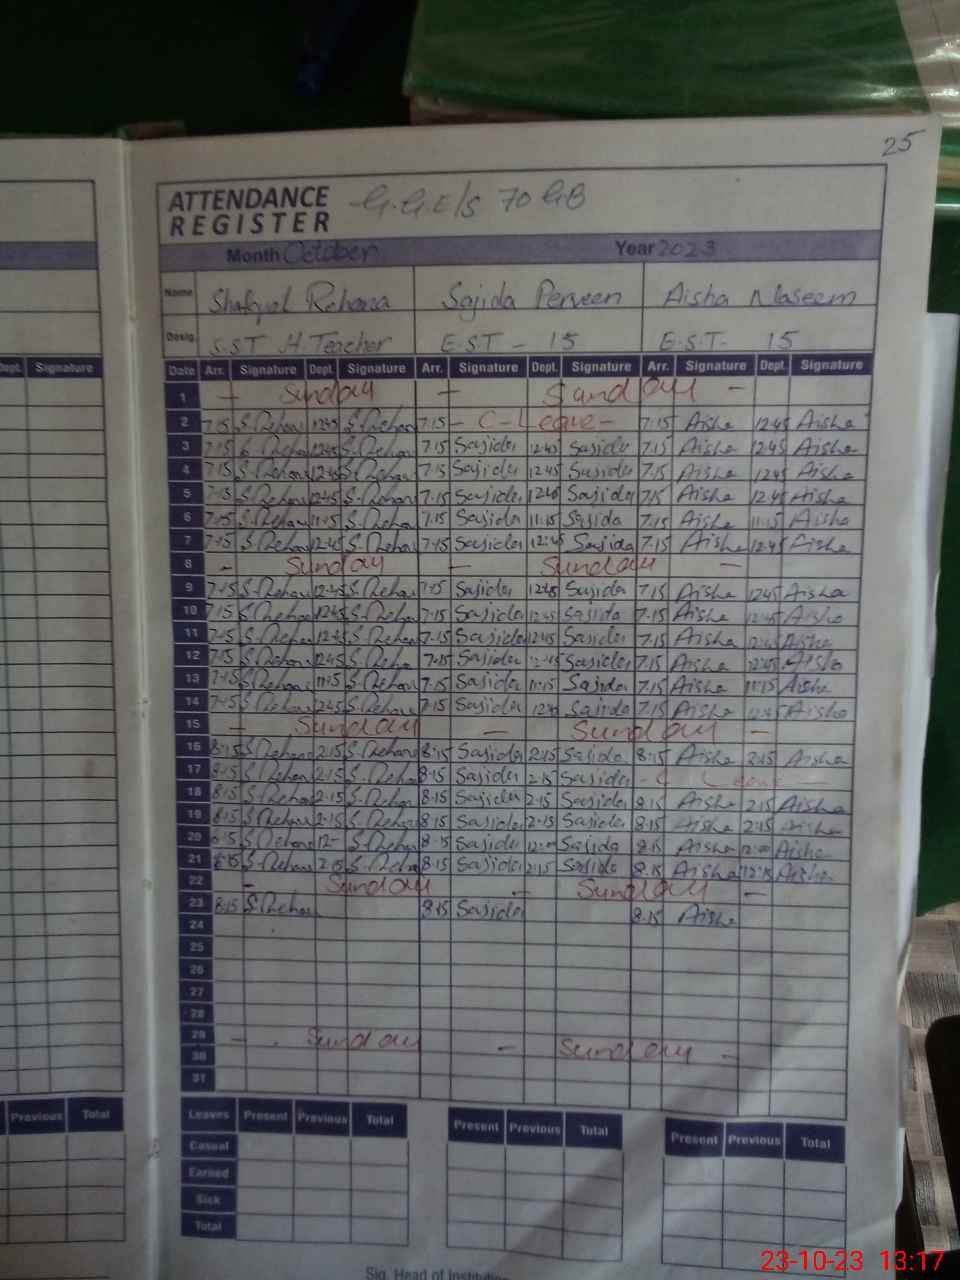 25
ATTENDANCE G.G.E/S 70 GB
REGISTER
Month October Year 2023
Name Rehana Sajida Perveen Aisha Naseem
Desig. S.ST H.Teacher E.S.T - 15 E.S.T- 15
Dept. Signature Date Arr. Signature Dept. Signature Arr. Signature Dept. Signature Arr. Signature Dept. Signature
1 - Sunday - Sunday -
2 7:15 S.Rehana 12:45 S.Rehana 7:15 - C-Leave - 7:15 Aisha 12:45 Aisha
3 7:15 S.Rehana 12:45 S.Rehana 7:15 Sajida 12:45 Sajida 7:15 Aisha 12:45 Aisha
4 7:15 S.Rehana 12:45 S.Rehana 7:15 Sajida 12:45 Sajida 7:15 Aisha 12:45 Aisha
5 7:15 S.Rehana 12:45 S.Rehana 7:15 Sajida 12:45 Sajida 7:15 Aisha 12:45 Aisha
6 7:15 S.Rehana 11:15 S.Rehana 7:15 Sajida 11:15 Sajida 7:15 Aisha 11:15 Aisha
7 7:15 S.Rehana 12:45 S.Rehana 7:15 Sajida 12:45 Sajida 7:15 Aisha 12:45 Aisha
8 - Sunday - Sunday -
9 7:15 S.Rehana 12:45 S.Rehana 7:15 Sajida 12:45 Sajida 7:15 Aisha 12:45 Aisha
10 7:15 S.Rehana 12:45 S.Rehana 7:15 Sajida 12:45 Sajida 7:15 Aisha 12:45 Aisha
11 7:15 S.Rehana 12:45 S.Rehana 7:15 Sajida 12:45 Sajida 7:15 Aisha 12:45 Aisha
12 7:15 S.Rehana 12:45 S.Rehana 7:15 Sajida 12:45 Sajida 7:15 Aisha 12:45 Aisha
13 7:15 S.Rehana 11:15 S.Rehana 7:15 Sajida 11:15 Sajida 7:15 Aisha 11:15 Aisha
14 7:15 S.Rehana 12:45 S.Rehana 7:15 Sajida 12:45 Sajida 7:15 Aisha 12:45 Aisha
15 - Sunday - Sunday -
16 8:15 S.Rehana 2:15 S.Rehana 8:15 Sajida 2:15 Sajida 8:15 Aisha 2:15 Aisha
17 8:15 S.Rehana 2:15 S.Rehana 8:15 Sajida 2:15 Sajida - C Leave -
18 8:15 S.Rehana 2:15 S.Rehana 8:15 Sajida 2:15 Sajida 8:15 Aisha 2:15 Aisha
19 8:15 S.Rehana 2:15 S.Rehana 8:15 Sajida 2:15 Sajida 8:15 Aisha 2:15 Aisha
20 8:15 S.Rehana 12- S.Rehana 8:15 Sajida 12:00 Sajida 8:15 Aisha 12:00 Aisha
21 8:15 S.Rehana 2:15 S.Rehana 8:15 Sajida 2:15 Sajida 8:15 Aisha Aisha
22 - Sunday - Sunday -
23 8:15 S.Rehana 8:15 Sajida 8:15 Aisha
24
25
26
27
28
29 - Sunday - Sunday -
30
31
Previous Total Leaves Present Previous Total Present Previous Total Present Previous Total
Casual
Earned
Sick
Total
Sig. Head of
23-10-23 13:17